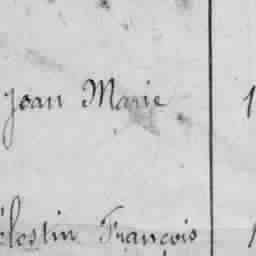 Jean Marie 1
élestin François 1